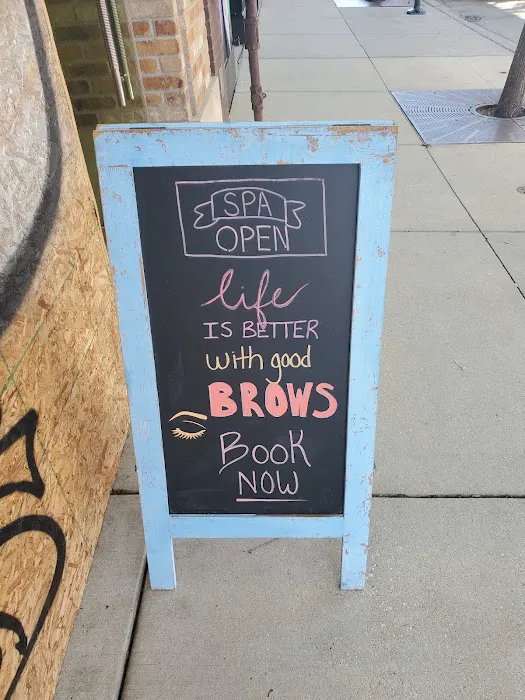 SPA
OPEN
life
IS BETTER
with good
BROWS
BOOK
NOW